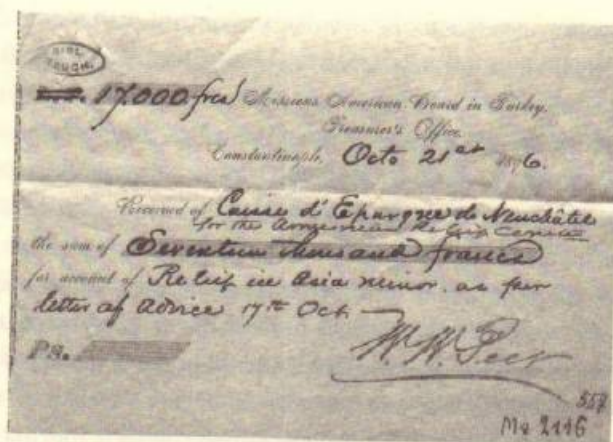 BIBL.
17.000 frcs Missions American Board in Turkey.
Treasurer's Office.
Constantinople, Octo 21st 1896.
Received of Caisse d'Epargne de Neuchâtel
for the Armenian Relief
the sum of Seventeen thousand francs
for account of Relief in Asia minor. as per
letter of Advice 17th Oct.
W. W. Peet
PS.
557
Ms 2116